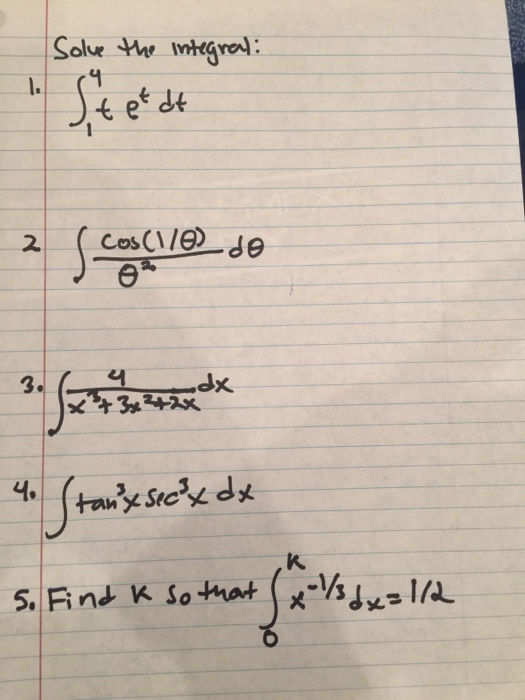 Solve the integral:
1. ∫₁⁴ t eᵗ dt
2 ∫ cos(1/θ)/θ² dθ
3. ∫ 4/(x³+3x²+2x) dx
4. ∫ tan³x sec³x dx
5. Find K so that ∫₀ᴷ x^(-1/3) dx = 1/2